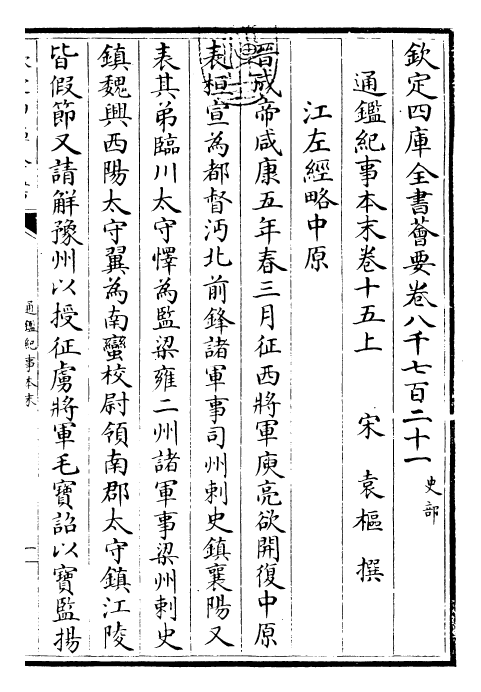 欽定四庫全書薈要卷八千七百二十一 史部
通鑑紀事本末卷十五上 宋 袁樞 撰
江左經略中原
晉成帝咸康五年春三月征西將軍庾亮欲開復中原
表桓宣為都督沔北前鋒諸軍事司州刺史鎮襄陽又
表其弟臨川太守懌為監梁雍二州諸軍事梁州刺史
鎮魏興西陽太守翼為南蠻校尉領南郡太守鎮江陵
皆假節又請解豫州以授征虜將軍毛寶詔以寶監揚
通鑑紀事本末
一